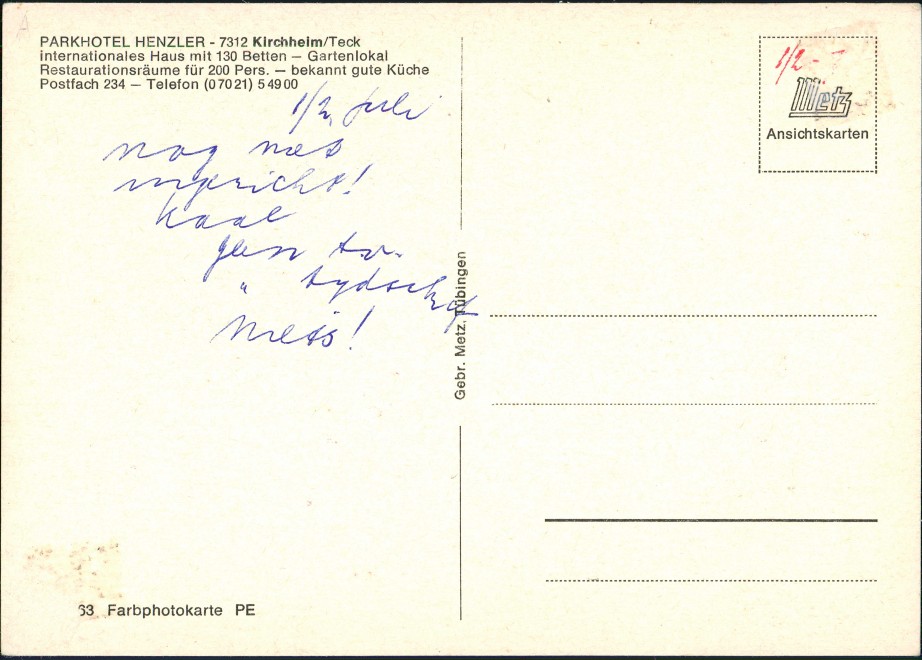 PARKHOTEL HENZLER - 7312 Kirchheim/Teck
internationales Haus mit 130 Betten — Gartenlokal
Restaurationsräume für 200 Pers. — bekannt gute Küche
Postfach 234 — Telefon (0 70 21) 5 49 00
1/2 Juli
nog net
ingericht!
Kaal
geen tv.
" tydschrif
Niets!
Gebr. Metz, Tübingen
1/2 -
Metz
Ansichtskarten
63 Farbphotokarte PE